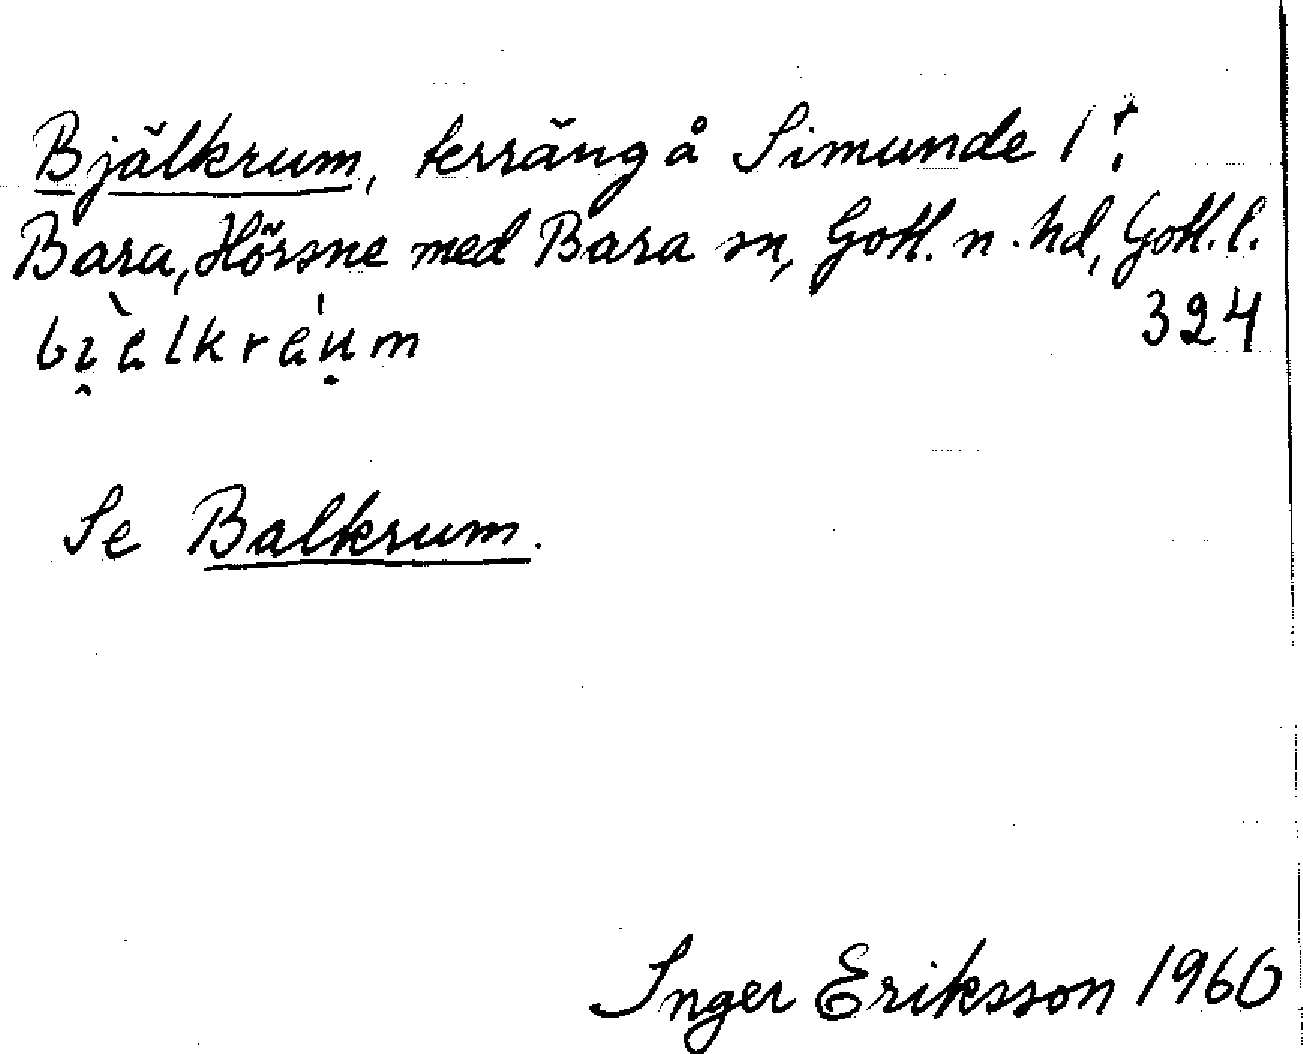 Bjälkrum, terräng å Simunde 1⁺,
Bara, Hörsne med Bara sn, Gotl. n. hd, Gotl. l.
bi̯ ̀elkráu̇m 324
Se Balkrum.
Inger Eriksson 1960